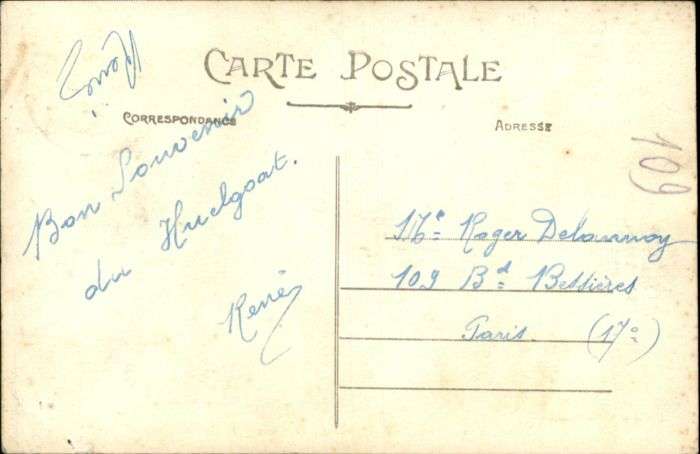 CARTE POSTALE
CORRESPONDANCE
ADRESSE
Bon Souvenir
du Huelgoat.
René
109
Mr Roger Delannoy
109 Bd Bessières
Paris. (17e)